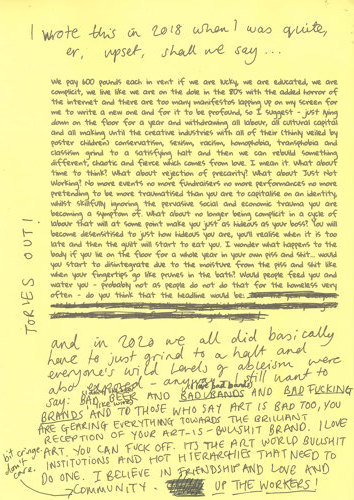 I wrote this in 2018 when I was quite,
er, upset, shall we say...
We pay 600 pounds each in rent if we are lucky, we are educated, we are
complicit, we live like we are on the dole in the 80's with the added horror of
the internet and there are too many manifestos lapping up on my screen for
me to write a new one and for it to be profound, so I suggest - just lying
down on the floor for a year and withdrawing all labour, all cultural capital
and all making until the creative industries with all of their (thinly veiled by
poster children) conservatism, sexism, racism, homophobia, transphobia and
classism grind to a satisfying halt and then we can rebuild something
different, chaotic and fierce which comes from love. I mean it. What about
time to think? What about rejection of precarity? What about Just Not
Working? No more events no more fundraisers no more performances no more
pretending to be more traumatised than you are to capitalise on an identity
whilst skilfully ignoring the pervasive social and economic trauma you are
becoming a symptom of. What about no longer being complicit in a cycle of
labour that will at some point make you just as hideous as your boss? You will
become desensitised to just how hideous you are, you'll realise when it is too
late and then the guilt will start to eat you. I wonder what happens to the
body if you lie on the floor for a whole year in your own piss and shit... would
you start to disintegrate due to the moisture from the piss and shit like
when your fingertips go like prunes in the bath? Would people feed you and
water you - probably not as people do not do that for the homeless very
often - do you think that the headline would be:
TORIES OUT!
and in 2020 we all did basically
have to just grind to a halt and
everyone's wild levels of ableism were
also exposed - anyway I still want to
say: BAD and BAD BANDS and BAD FUCKING
BRANDS AND TO THOSE WHO SAY ART IS BAD TOO, YOU
ARE GEARING EVERYTHING TOWARDS THE BRILLIANT
RECEPTION OF YOUR ART-IS-BULLSHIT BRAND. I LOVE
ART. YOU CAN FUCK OFF. ITS THE ART WORLD BULLSHIT
INSTITUTIONS AND HOT HIERARCHIES THAT NEED TO
DO ONE. I BELIEVE IN FRIENDSHIP AND LOVE AND
COMMUNITY. UP THE WORKERS!
bit cringe
don't
care.